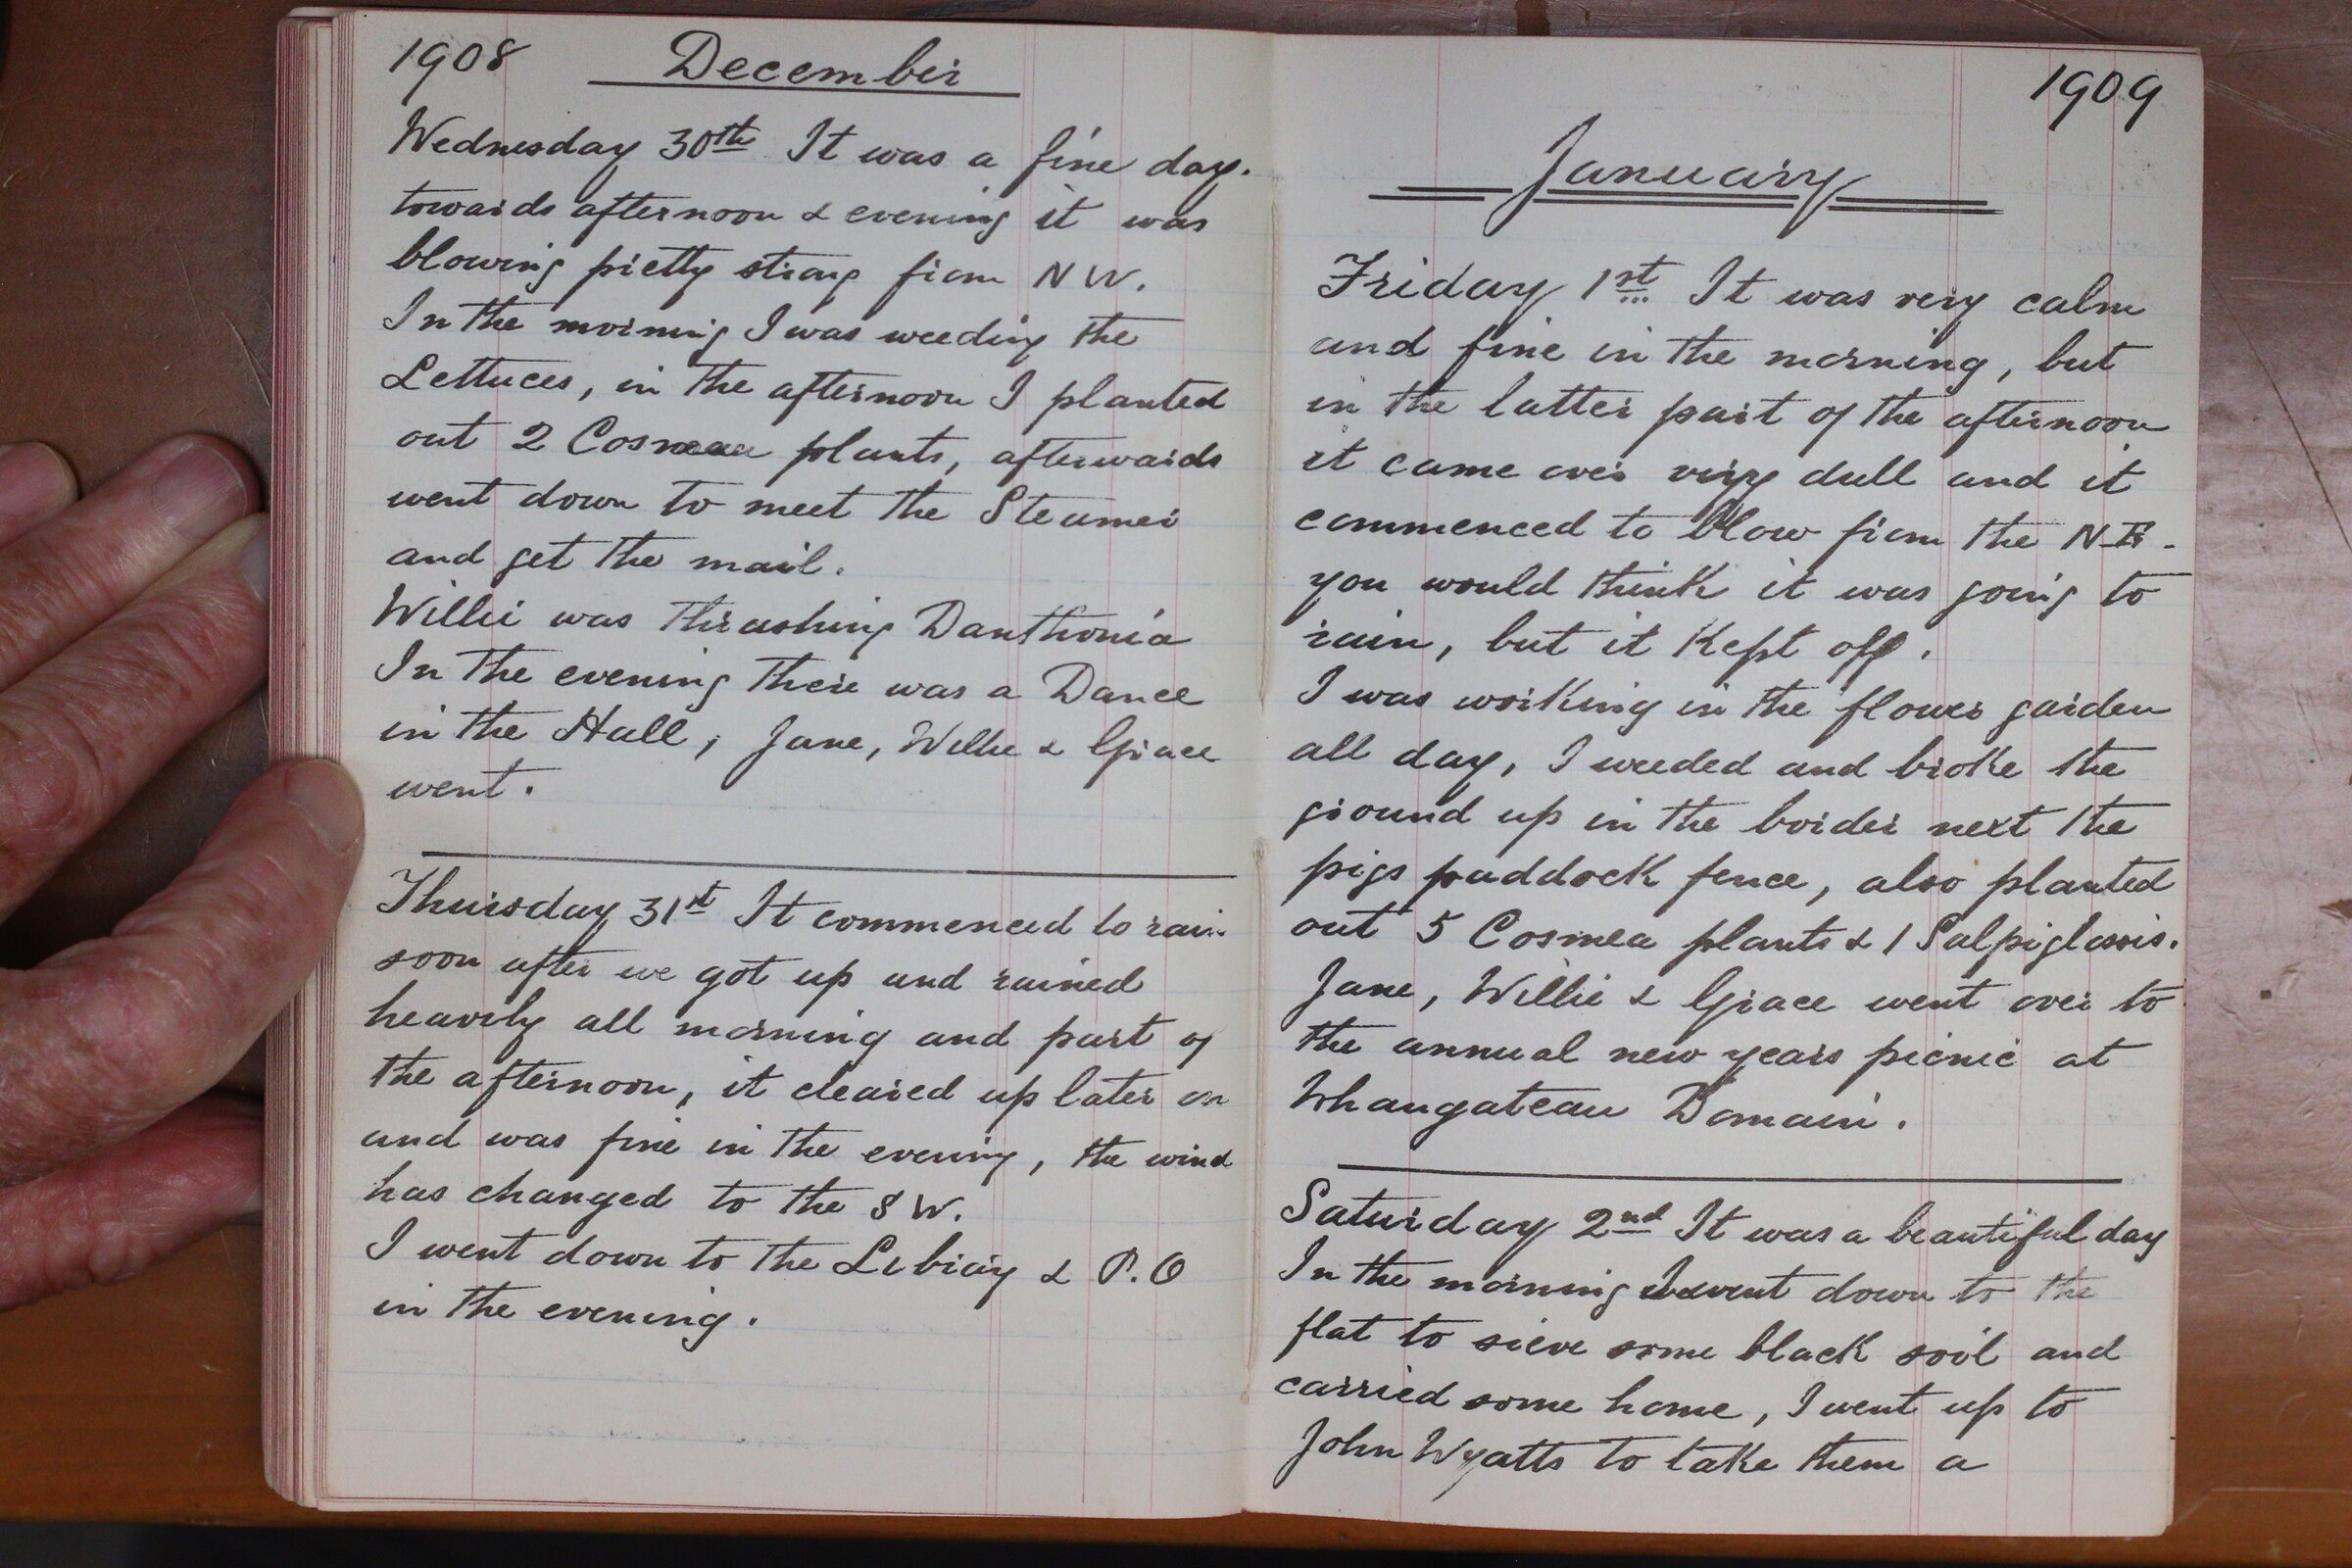 1908 December
Wednesday 30th It was a fine day.
towards afternoon & evening it was
blowing pretty strong from NW.
In the morning I was weeding the
Lettuces, in the afternoon I planted
out 2 Cosmea plants, afterwards
went down to meet the Steamer
and get the mail.
Willie was Thrashing Danthonia
In the evening there was a Dance
in the Hall, Jane, Willie & Grace
went.
Thursday 31st It commenced to rain
soon after we got up and rained
heavily all morning and part of
the afternoon, it cleared up later on
and was fine in the evening, the wind
has changed to the SW.
I went down to the Library & P.O
in the evening.
1909
January
Friday 1st It was very calm
and fine in the morning, but
in the latter part of the afternoon
it came over very dull and it
commenced to blow from the NE.
you would think it was going to
rain, but it kept off.
I was working in the flower garden
all day, I weeded and broke the
ground up in the border next the
pigs paddock fence, also planted
out 5 Cosmea plants & 1 Salpiglossis.
Jane, Willie & Grace went over to
the annual new years picnic at
Whangateau Domain.
Saturday 2nd It was a beautiful day
In the morning I went down to the
flat to sieve some black soil and
carried some home, I went up to
John Wyatts to take them a